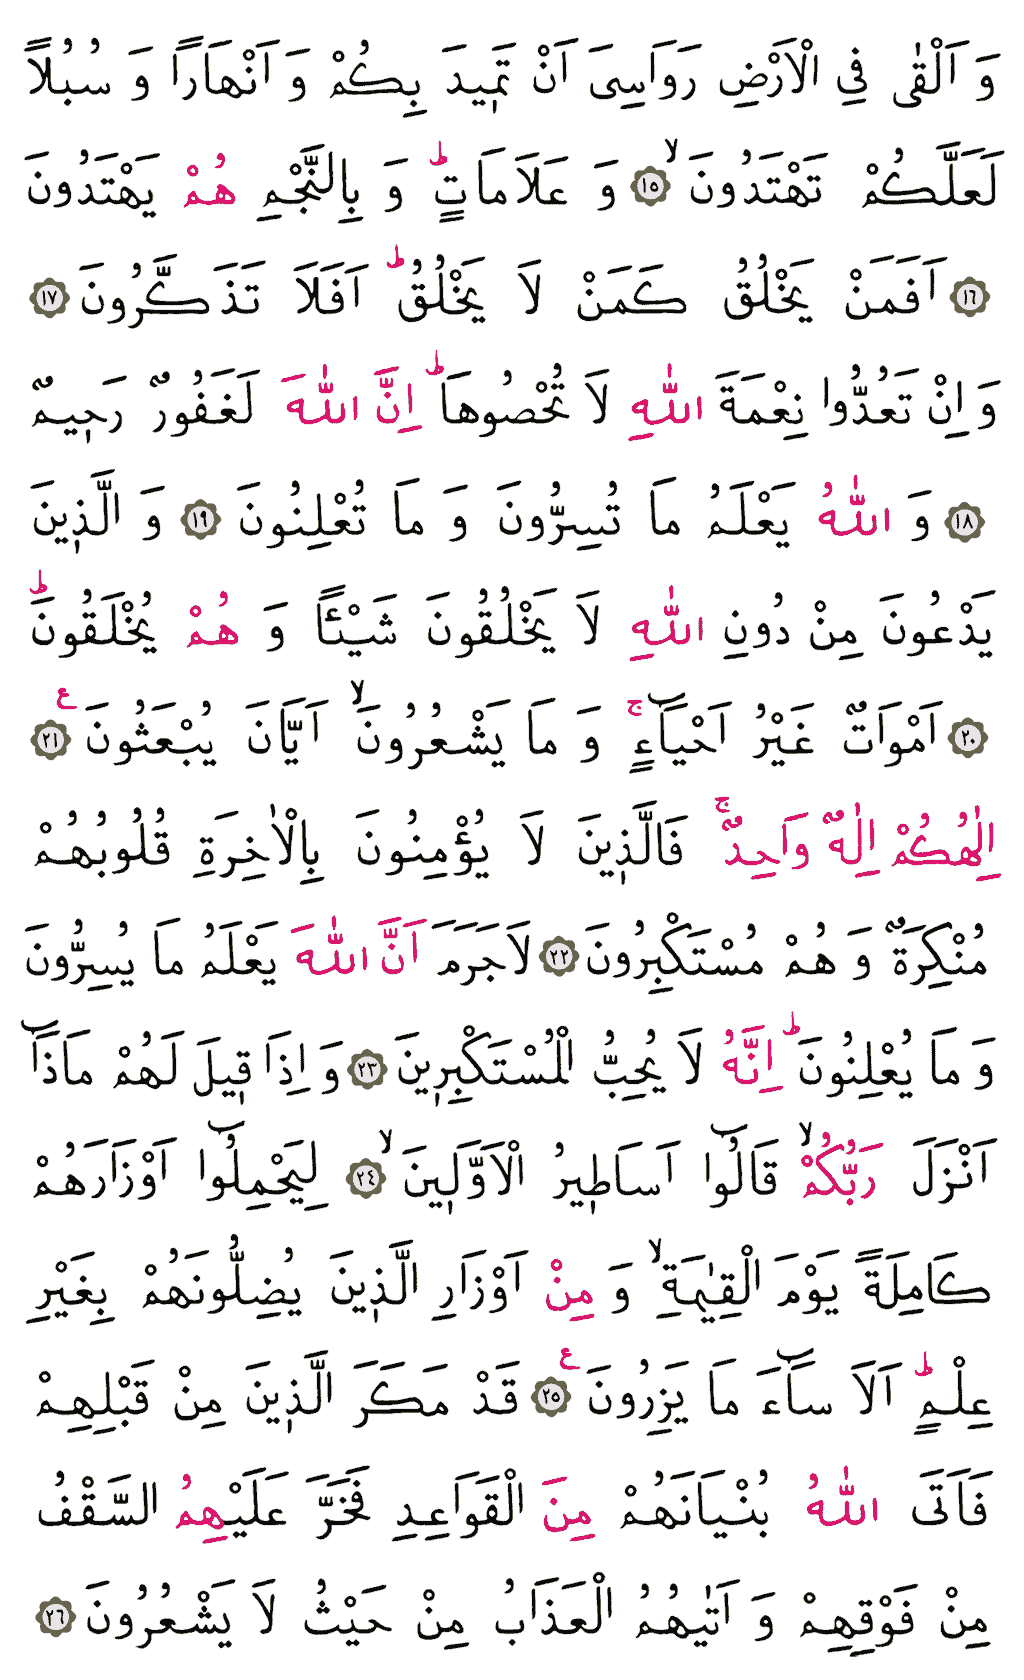 وَ اَلْقٰى فِي الْاَرْضِ رَوَاسِىَ اَنْ تَمٖيدَ بِكُمْ وَ اَنْهَارًا وَ سُبُلًا
لَعَلَّكُمْ تَهْتَدُونَۙ ﴿١٥﴾ وَ عَلَامَاتٍؕ وَ بِالنَّجْمِ هُمْ يَهْتَدُونَ
﴿١٦﴾ اَفَمَنْ يَخْلُقُ كَمَنْ لَا يَخْلُقُؕ اَفَلَا تَذَكَّرُونَ ﴿١٧﴾
وَ اِنْ تَعُدُّوا نِعْمَةَ اللّٰهِ لَا تُحْصُوهَاؕ اِنَّ اللّٰهَ لَغَفُورٌ رَحٖيمٌ
﴿١٨﴾ وَ اللّٰهُ يَعْلَمُ مَا تُسِرُّونَ وَ مَا تُعْلِنُونَ ﴿١٩﴾ وَ الَّذٖينَ
يَدْعُونَ مِنْ دُونِ اللّٰهِ لَا يَخْلُقُونَ شَيْـًٔا وَ هُمْ يُخْلَقُونَؕ
﴿٢٠﴾ اَمْوَاتٌ غَيْرُ اَحْيَٓاءٍۚ وَ مَا يَشْعُرُونَۙ اَيَّانَ يُبْعَثُونَ ﴿٢١﴾ ع
اِلٰهُكُمْ اِلٰهٌ وَاحِدٌۚ فَالَّذٖينَ لَا يُؤْمِنُونَ بِالْاٰخِرَةِ قُلُوبُهُمْ
مُنْكِرَةٌ وَ هُمْ مُسْتَكْبِرُونَ ﴿٢٢﴾ لَاجَرَمَ اَنَّ اللّٰهَ يَعْلَمُ مَا يُسِرُّونَ
وَ مَا يُعْلِنُونَؕ اِنَّهُ لَا يُحِبُّ الْمُسْتَكْبِرٖينَ ﴿٢٣﴾ وَ اِذَا قٖيلَ لَهُمْ مَاذَٓا
اَنْزَلَ رَبُّكُمْۙ قَالُٓوا اَسَاطٖيرُ الْاَوَّلٖينَۙ ﴿٢٤﴾ لِيَحْمِلُٓوا اَوْزَارَهُمْ
كَامِلَةً يَوْمَ الْقِيٰمَةِۙ وَ مِنْ اَوْزَارِ الَّذٖينَ يُضِلُّونَهُمْ بِغَيْرِ
عِلْمٍؕ اَلَا سَٓاءَ مَا يَزِرُونَ ﴿٢٥﴾ ع قَدْ مَكَرَ الَّذٖينَ مِنْ قَبْلِهِمْ
فَاَتَى اللّٰهُ بُنْيَانَهُمْ مِنَ الْقَوَاعِدِ فَخَرَّ عَلَيْهِمُ السَّقْفُ
مِنْ فَوْقِهِمْ وَ اَتٰيهُمُ الْعَذَابُ مِنْ حَيْثُ لَا يَشْعُرُونَ ﴿٢٦﴾